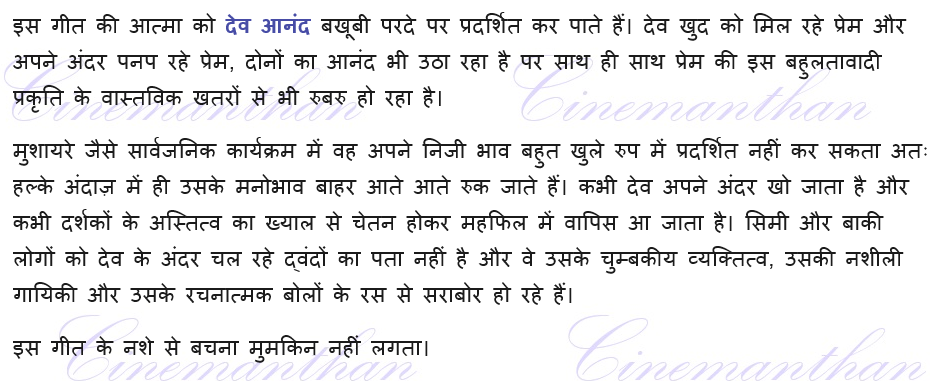 इस गीत की आत्मा को देव आनंद बखूबी परदे पर प्रदर्शित कर पाते हैं। देव खुद को मिल रहे प्रेम और
अपने अंदर पनप रहे प्रेम, दोनों का आनंद भी उठा रहा है पर साथ ही साथ प्रेम की इस बहुलतावादी
प्रकृति के वास्तविक खतरों से भी रुबरु हो रहा है।
Cinemanthan Cinemanthan
मुशायरे जैसे सार्वजनिक कार्यक्रम में वह अपने निजी भाव बहुत खुले रुप में प्रदर्शित नहीं कर सकता अतः
हल्के अंदाज़ में ही उसके मनोभाव बाहर आते आते रुक जाते हैं। कभी देव अपने अंदर खो जाता है और
कभी दर्शकों के अस्तित्व का ख्याल से चेतन होकर महफिल में वापिस आ जाता है। सिमी और बाकी
लोगों को देव के अंदर चल रहे द्वंदों का पता नहीं है और वे उसके चुम्बकीय व्यक्तित्व, उसकी नशीली
गायिकी और उसके रचनात्मक बोलों के रस से सराबोर हो रहे हैं।
इस गीत के नशे से बचना मुमकिन नहीं लगता।
Cinemanthan Cinemanthan